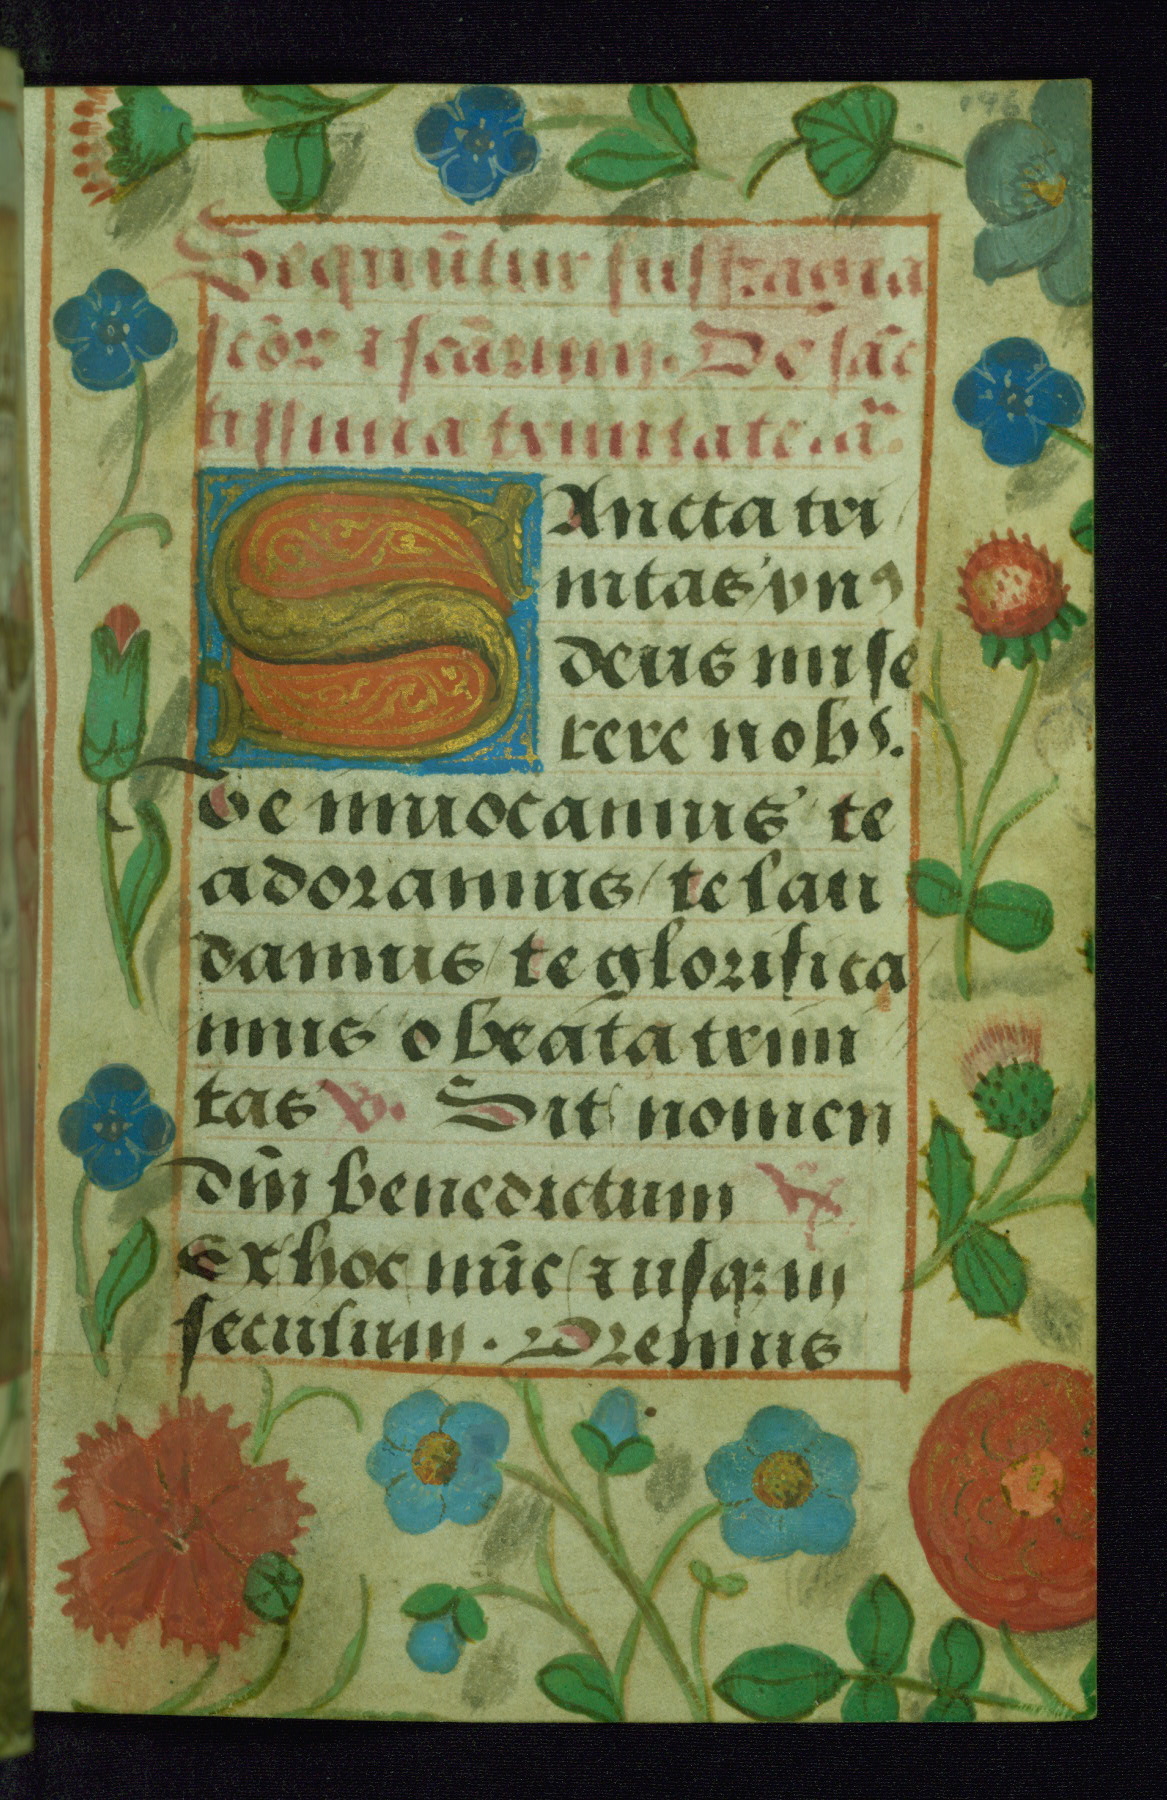 Sequūtur suffragia
scōꝝ ⁊ scāꝝum. De sāc
tissima trinitate. añ.
SAncta tri
nitas vnꝰ
deus mise
rere nobˢ.
Te inuocamus te
adoramus / te lau
damus / te glorifica
mus o beata trini
tas v. Sit nomen
dn̄i benedictum ℟.
Ex hoc nūc / ⁊ usqꝫ in
seculum. Oremus